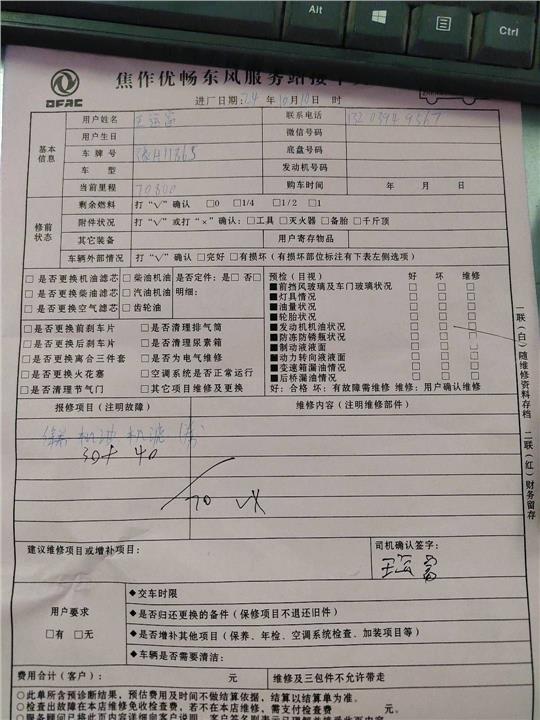 Alt
Ctrl
DFAC
焦作优畅东风服务站接车
进厂日期:24年10月10日 时
基本信息
用户姓名 联系电话 13203949567
用户生日 微信号码
车牌号 底盘号码
车型 发动机号码
当前里程 70800 购车时间 年 月 日
修前状态
剩余燃料 打“√”确认 □0 □1/4 □1/2 □1
附件状况 打“√”或打“×”确认:□工具 □灭火器 □备胎 □千斤顶
其它装备 用户寄存物品
车辆外部情况 打“√”确认 □完好 □有损坏(有损坏部位标注有下表左侧选项)
□是否更换机油滤芯 □柴油机油 是否定件:是□ 否□
□是否更换柴油滤芯 □汽油机油 明细:
□是否更换空气滤芯 □齿轮油
□是否更换前刹车片 □是否清理排气筒
□是否更换后刹车片 □是否清理尿素箱
□是否更换离合三件套 □是否为电气维修
□是否更换火花塞 □空调系统是否正常运行
□是否清理节气门 □其它项目维修及更换
预检(目视) 好 坏 维修
■前挡风玻璃及车门玻璃状况 □ □ □
■灯具情况 □ □ □
■油量状况 □ □ □
■轮胎状况 □ □ □
■发动机机油状况 □ □ □
■防冻防锈瓶状况 □ □ □
■制动液液面 □ □ □
■动力转向液液面 □ □ □
■变速箱漏油情况 □ □ □
■后桥漏油情况 □ □ □
好:合格 坏:有故障需维修 维修:用户确认维修
报修项目(注明故障) 维修内容(注明维修部件)
30+40
70
建议维修项目或增补项目: 司机确认签字:
用户要求
□有 □无
◆交车时限
◆是否归还更换的备件(保修项目不退还旧件)
◆是否增补其他项目(保养、年检、空调系统检查、加装项目等)
◆车辆是否需要清洁:
费用合计(客户): 元 维修及三包件不允许带走
○此单所含预诊断结果,预估费用及时间不做结算依据,结算以结算单为准。
○检查出故障在本店维修免收检查费,若不在本店维修,需支付检查费 元。
一联(白)随维修资料存档
二联(红)财务留存